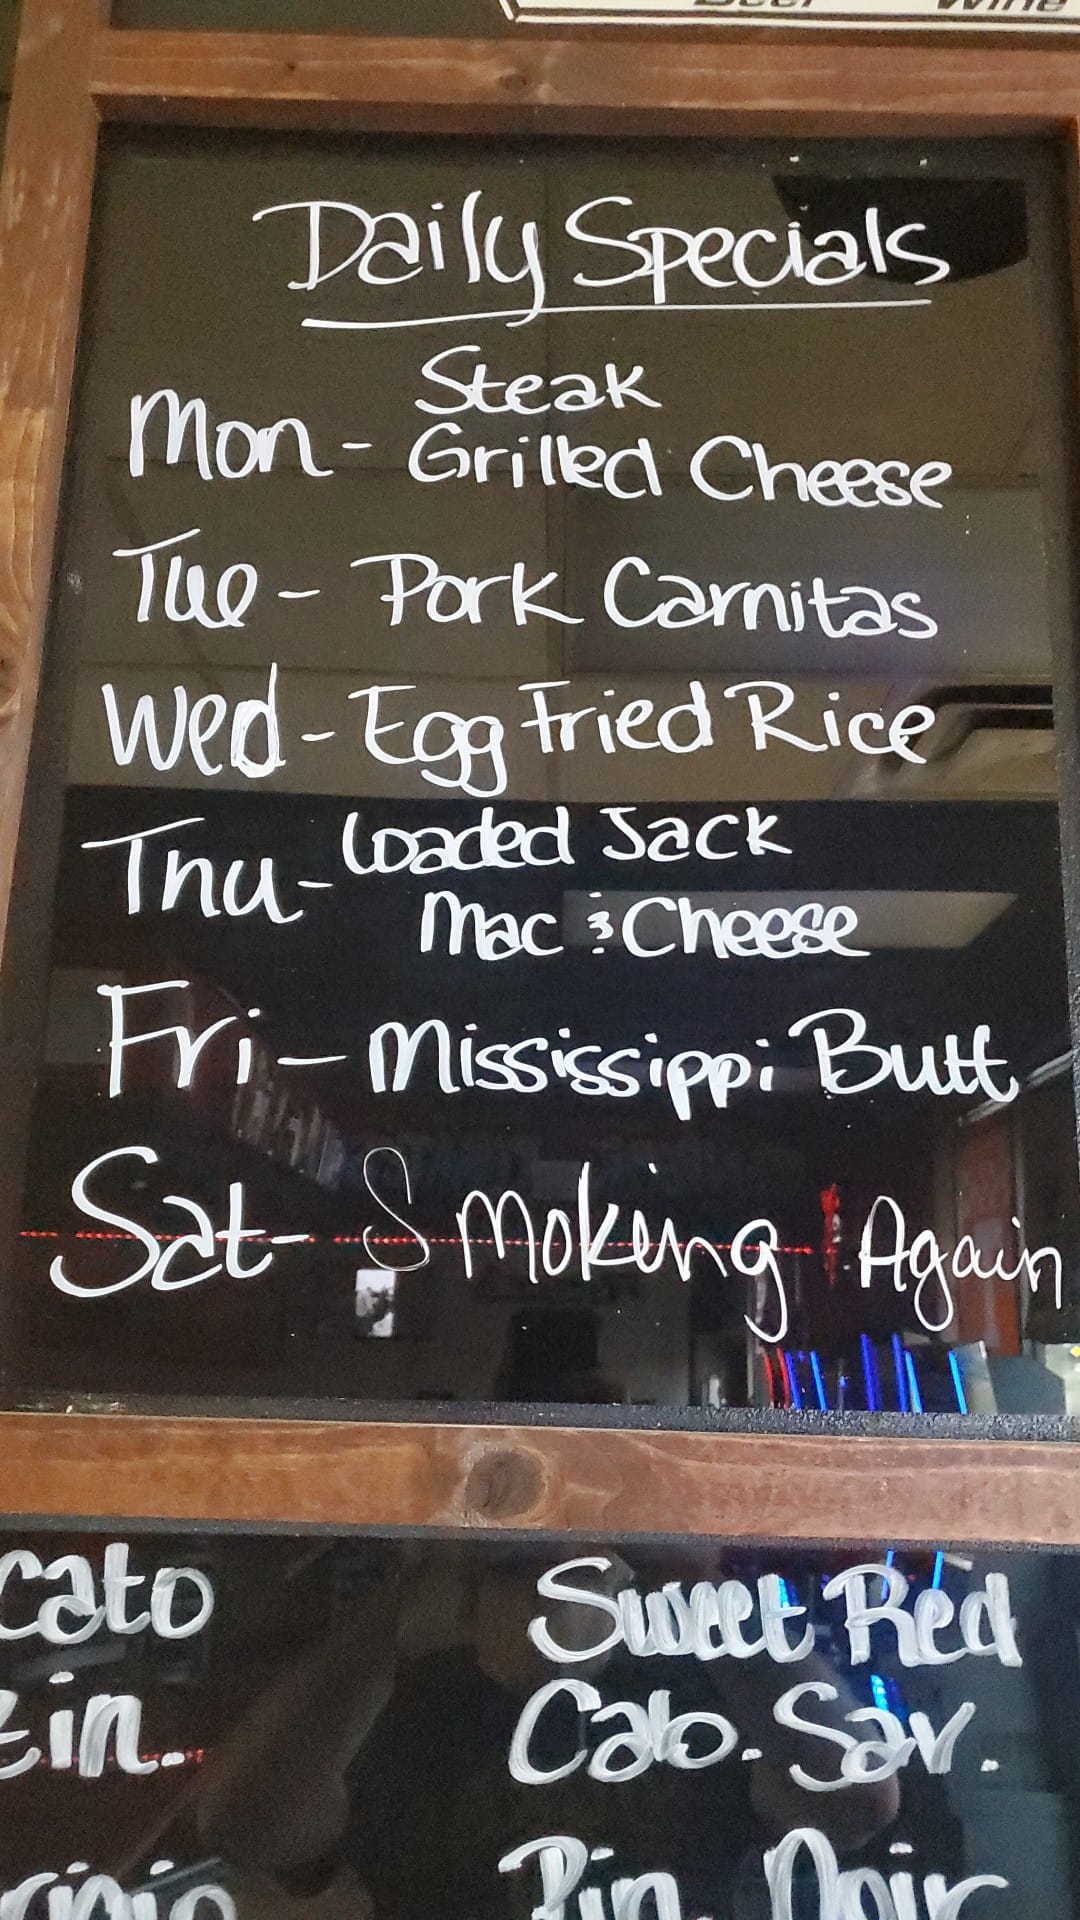 Beer Wine
Daily Specials
Steak
Mon - Grilled Cheese
Tue - Pork Carnitas
Wed - Egg Fried Rice
Thu - Loaded Jack
Mac & Cheese
Fri - Mississippi Butt
Sat - Smoking Again
cato Sweet Red
Cab. Sav.
Pin. Noir